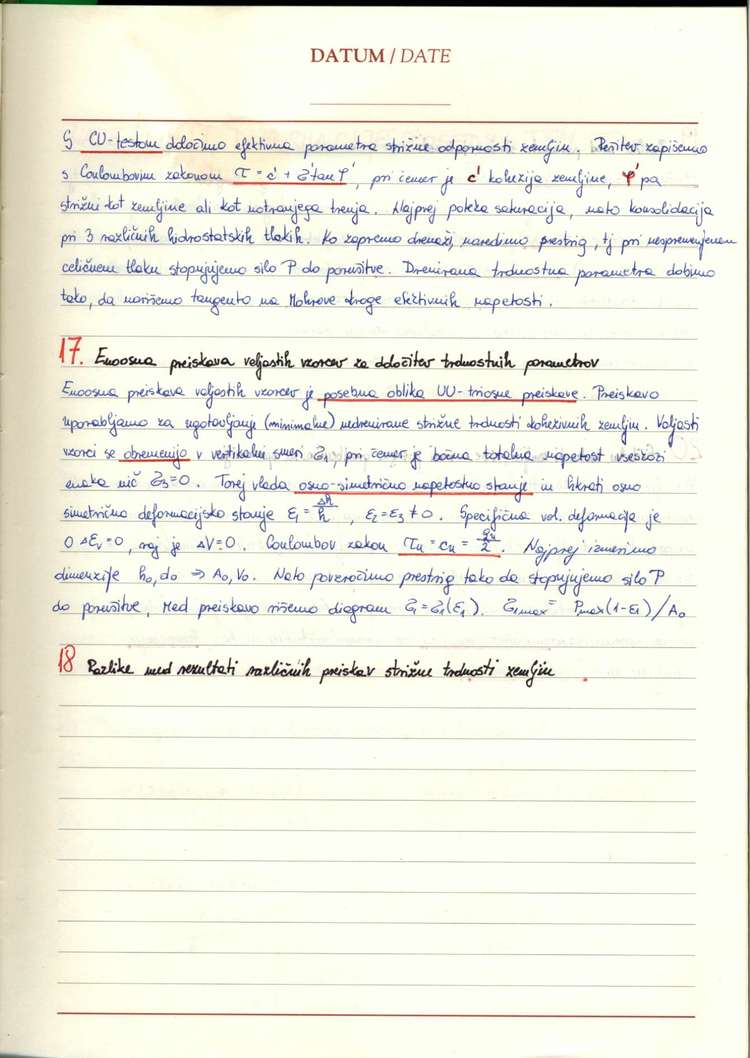 DATUM / DATE
S CU-testom določimo efektivna parametra strižne odpornosti zemljin. Rešitev zapišemo
s Coulombovim zakonom τ = c' + σ'tan φ', pri čemer je c' kohezija zemljine, φ' pa
strižni kot zemljine ali kot notranjega trenja. Najprej poteka saturacija, nato konsolidacija
pri 3 različnih hidrostatskih tlakih. Ko zapremo drenaži, naredimo prestrig, tj pri nespremenjenem
celičnem tlaku stopnjujemo silo P do porušitve. Drenirana trdnostna parametra dobimo
tako, da narišemo tangento na Mohrove kroge efektivnih napetosti.
17. Enoosna preiskava valjastih vzorcev za določitev trdnostnih parametrov
Enoosna preiskava valjastih vzorcev je posebna oblika UU-triosne preiskave. Preiskavo
uporabljamo za ugotavljanje (minimalne) nedrenirane strižne trdnosti kohezivnih zemljin. Valjasti
vzorci se obremenijo v vertikalni smeri σ1, pri čemer je bočna totalna napetost vseskozi
enaka nič σ3=0. Torej vlada osno-simetrično napetostno stanje in hkrati osno
simetrično deformacijsko stanje ε1 = Δh/h, ε2=ε3≠0. Specifična vol. deformacija je
0 Δεv=0, saj je ΔV=0. Coulombov zakon τu = cu = qu/2. Najprej izmerimo
dimenzije h0,d0 ⇒ A0,V0. Nato povzročimo prestrig tako da stopnjujemo silo P
do porušitve. Med preiskavo rišemo diagram σ1=σ1(ε1). σ1max = Pmax(1-ε1)/A0
18 Razlike med rezultati različnih preiskav strižne trdnosti zemljin